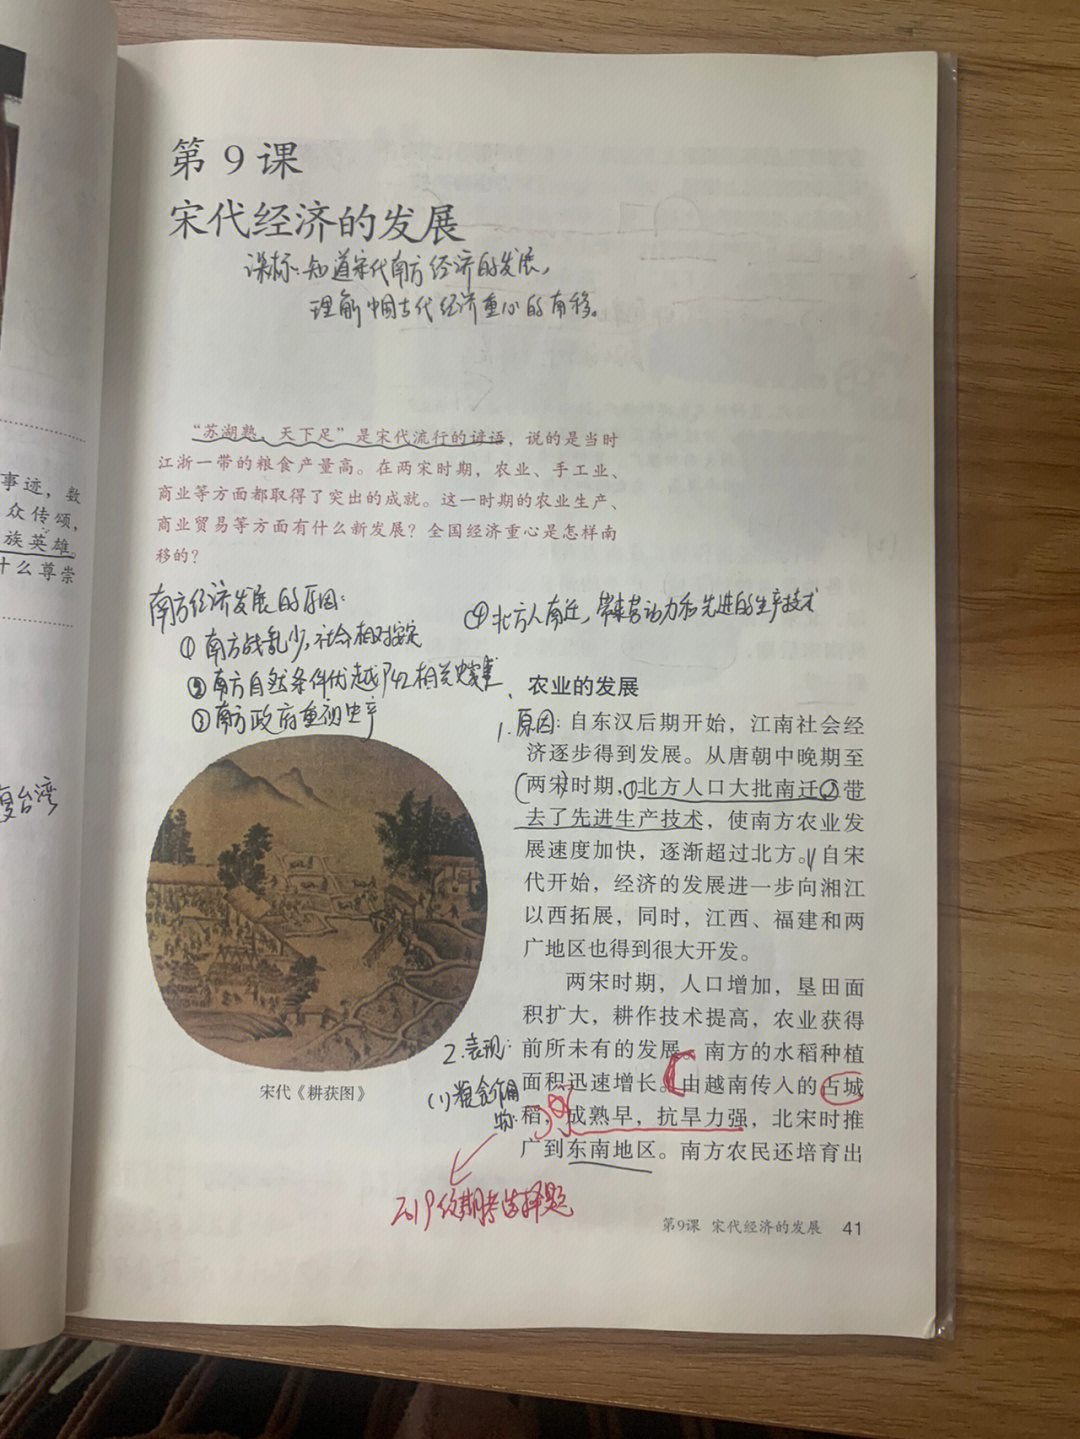 第 9 课
宋代经济的发展
课标:知道宋代南方经济的发展,
理解中国古代经济重心的南移。
“苏湖熟,天下足”是宋代流行的谚语,说的是当时
江浙一带的粮食产量高。在两宋时期,农业、手工业、
商业等方面都取得了突出的成就。这一时期的农业生产、
商业贸易等方面有什么新发展?全国经济重心是怎样南
移的?
南方经济发展的原因:
①南方战乱少,社会相对安定
②南方自然条件优越P42相关史事
③南方政府重视生产
④北方人南迁,带来劳动力和先进的生产技术
农业的发展
1.原因:自东汉后期开始,江南社会经
济逐步得到发展。从唐朝中晚期至
(两宋)时期,①北方人口大批南迁②带
去了先进生产技术,使南方农业发
展速度加快,逐渐超过北方。//自宋
代开始,经济的发展进一步向湘江
以西拓展,同时,江西、福建和两
广地区也得到很大开发。
两宋时期,人口增加,垦田面
积扩大,耕作技术提高,农业获得
2.表现:前所未有的发展。南方的水稻种植
面积迅速增长。由越南传入的占城
(1)粮食作物:
稻,成熟早,抗旱力强,北宋时推
广到东南地区。南方农民还培育出
宋代《耕获图》
2019级期考选择题
第9课 宋代经济的发展 41
事迹,数
众传颂,
族英雄。
什么尊崇
复台湾